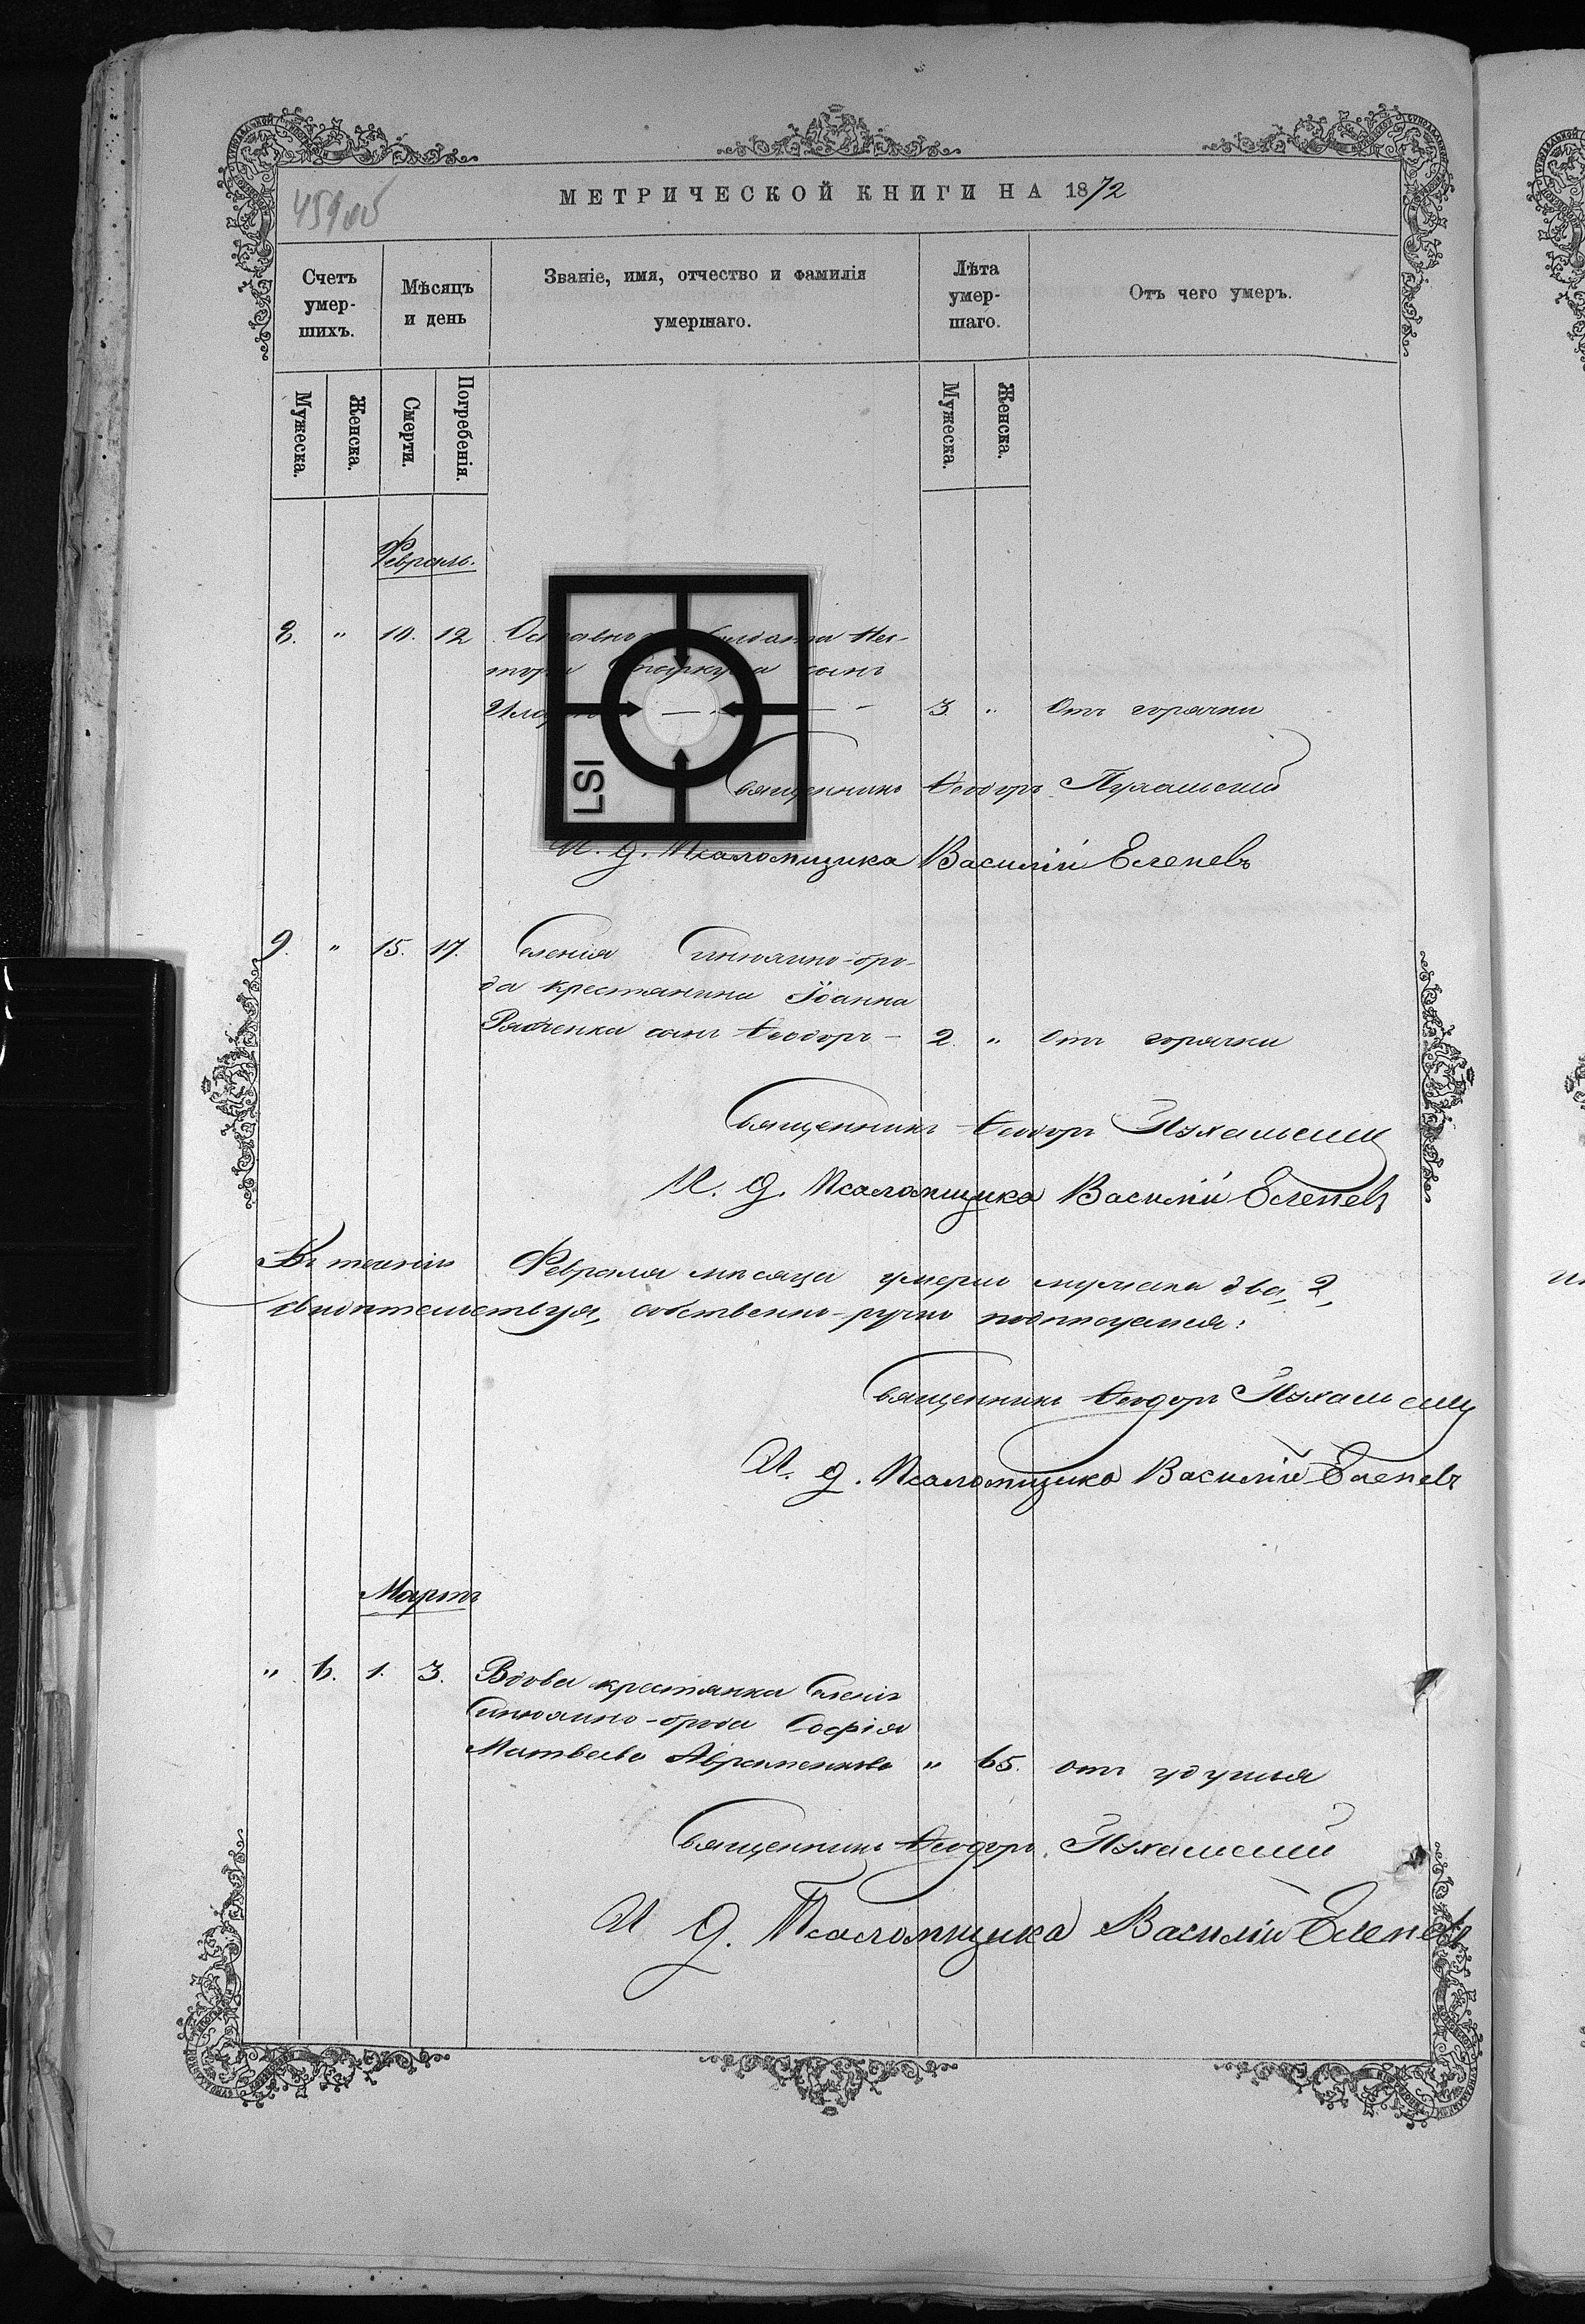 459об
МЕТРИЧЕСКОЙ КНИГИ НА 1872
Счетъ умер-шихъ.
Мѣсяцъ и день
Званіе, имя, отчество и фамилія умершаго.
Лѣта умер-шаго.
Отъ чего умеръ.
Мужеска.
Женска.
Смерти.
Погребенія.
Мужеска.
Женска.
Февраль.
8. " 10. 12 солдата Не-
стора сынъ
3. " Отъ горячки
Священникъ Ѳеодоръ Пухальскій
И. д. Псаломщика Василій Еленевъ
LSI
9. " 15. 17. Селенія Синяяго-бро-
да крестянина Іоанна
сынъ Ѳеодоръ - 2. " Отъ горячки
Священникъ Ѳеодоръ Пухальскій
И. д. Псаломщика Василій Еленевъ
Въ теченіи Февраля мѣсяца умерли мужеска два, 2,
свидѣтельствуя, собственно-ручно подписуемся:
Священникъ Ѳеодоръ Пухальскій
И. д. Псаломщика Василій Еленевъ
Мартъ
" 6. 1. 3. Вдова крестянка Селенія
Синяяго-брода Софія
Матвеева Авраменкова " 65. отъ удушья
Священникъ Ѳеодоръ Пухальскій
И д. Псаломщика Василій Еленевъ